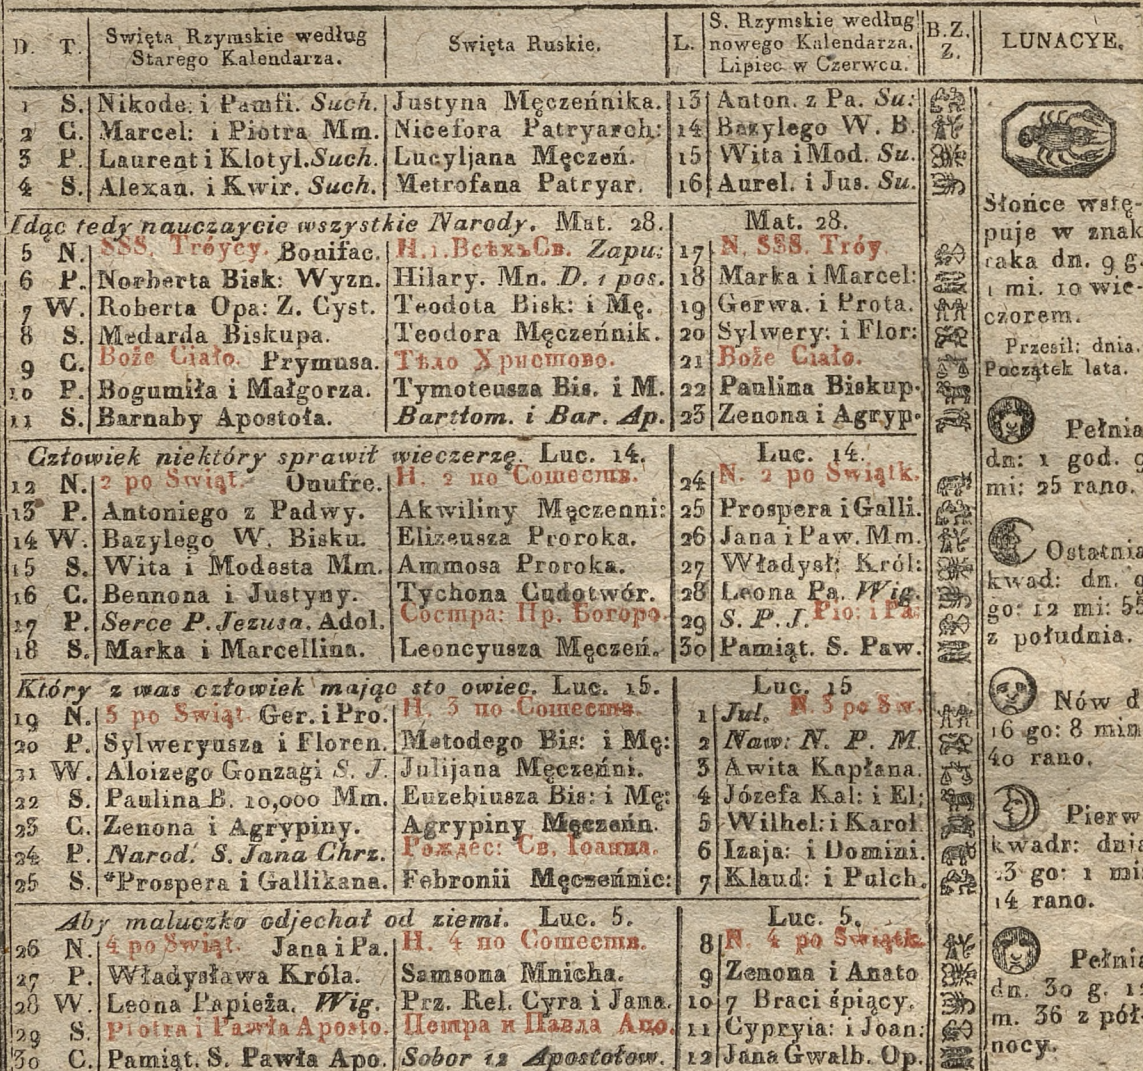 D. T. Swięta Rzymskie według Starego Kalendarza. Swięta Ruskie. L. S. Rzymskie według nowego Kalendarza. Lipiec w Czerwcu. B.Z. Z. LUNACYE.
1 S. Nikode. i Pamfi. Such. Justyna Męczeńnika. 13 Anton. z Pa. Su:
2 C. Marcel: i Piotra Mm. Nicefora Patryarch: 14 Bazylego W. B.
3 P. Laurent i Klotyl. Such. Lucyljana Męczeń. 15 Wita i Mod. Su.
4 S. Alexan. i Kwir. Such. Metrofana Patryar. 16 Aurel. i Jus. Su.
Idąc tedy nauczaycie wszystkie Narody. Mat. 28. Mat. 28.
5 N. SSS. Tróycy. Bonifac. Н. 1. ВсѣхъСв. Zapu: 17 N. SSS. Tróy
6 P. Norberta Bisk: Wyzn. Hilary. Mn. D. 1 pos. 18 Marka i Marcel:
7 W. Roberta Opa: Z. Cyst. Teodota Bisk: i Mę. 19 Gerwa. i Prota.
8 S. Medarda Biskupa. Teodora Męczeńnik. 20 Sylwery: i Flor:
9 C. Boże Ciało. Prymusa. Тѣло Христово. 21 Boże Ciało.
10 P. Bogumiła i Małgorza. Tymoteusza Bis. i M. 22 Paulina Biskup.
11 S. Barnaby Apostoła. Bartłom. i Bar. Ap. 23 Zenona i Agryp.
Człowiek niektóry sprawił wieczerzę. Luc. 14. Luc. 14.
12 N. 2 po Swiąt. Onufre. Н. 2 по Сошеств. 24 N. 2 po Swiątk.
13 P. Antoniego z Padwy. Akwiliny Męczenni: 25 Prospera i Galli.
14 W. Bazylego W. Bisku. Elizeusza Proroka. 26 Jana i Paw. Mm.
15 S. Wita i Modesta Mm. Ammosa Proroka. 27 Władysł: Król:
16 C. Bennona i Justyny. Tychona Cudotwór. 28 Leona Pą. Wig.
17 P. Serce P. Jezusa. Adol. Состра: Пр. Богоро. 29 S. P. J. Pio. i Pa.
18 S. Marka i Marcellina. Leoncyusza Męczeń. 30 Pamiąt. S. Paw.
Który z was człowiek mając sto owiec. Luc. 15. Luc. 15
19 N. 3 po Swiąt. Ger. i Pro. Н. 3 по Сошеств. 1 Jul. N. 3 po Sw.
20 P. Sylweryusza i Floren. Metodego Bis: i Mę: 2 Naw: N. P. M.
21 W. Aloizego Gonzagi S. J. Julijana Męczeńni. 3 Awita Kapłana.
22 S. Paulina B. 10,000 Mm. Euzebiusza Bis: i Mę: 4 Józefa Kal: i El:
23 C. Zenona i Agrypiny. Agrypiny Męczeńn. 5 Wilhel: i Karol
24 P. Narod. S. Jana Chrz. Рождес: Св. Іоанна. 6 Izaja: i Domini.
25 S. *Prospera i Gallikana. Febronii Męczeńnic: 7 Klaud: i Pulch.
Aby maluczko odjechał od ziemi. Luc. 5. Luc. 5.
26 N. 4 po Swiąt. Jana i Pa. Н. 4 по Сошеств. 8 N. 4 po Swiątk
27 P. Władysława Króla. Samsona Mnicha. 9 Zenona i Anato
28 W. Leona Papieża. Wig. Prz. Rel. Cyra i Jana. 10 7 Braci śpiący.
29 S. Piotra i Pawła Aposto. Петра и Павла Апо. 11 Cypryia: i Joan:
30 C. Pamiąt. S. Pawła Apo. Sobor 12 Apostołow. 12 Jana Gwalb. Op.
Słońce wstę-
puje w znak
raka dn. 9 g.
1 mi. 10 wie-
czorem.
Przesil: dnia.
Początek lata.
Pełnia
dn: 1 god. 9
mi: 25 rano.
Ostatnia
kwad: dn. 9
go: 12 mi: 55
z południa.
Nów d
16 go: 8 min
40 rano.
Pierw
kwadr: dnia
23 go: 1 mi
14 rano.
Pełnia
dn. 30 g. 12
m. 36 z pół-
nocy.